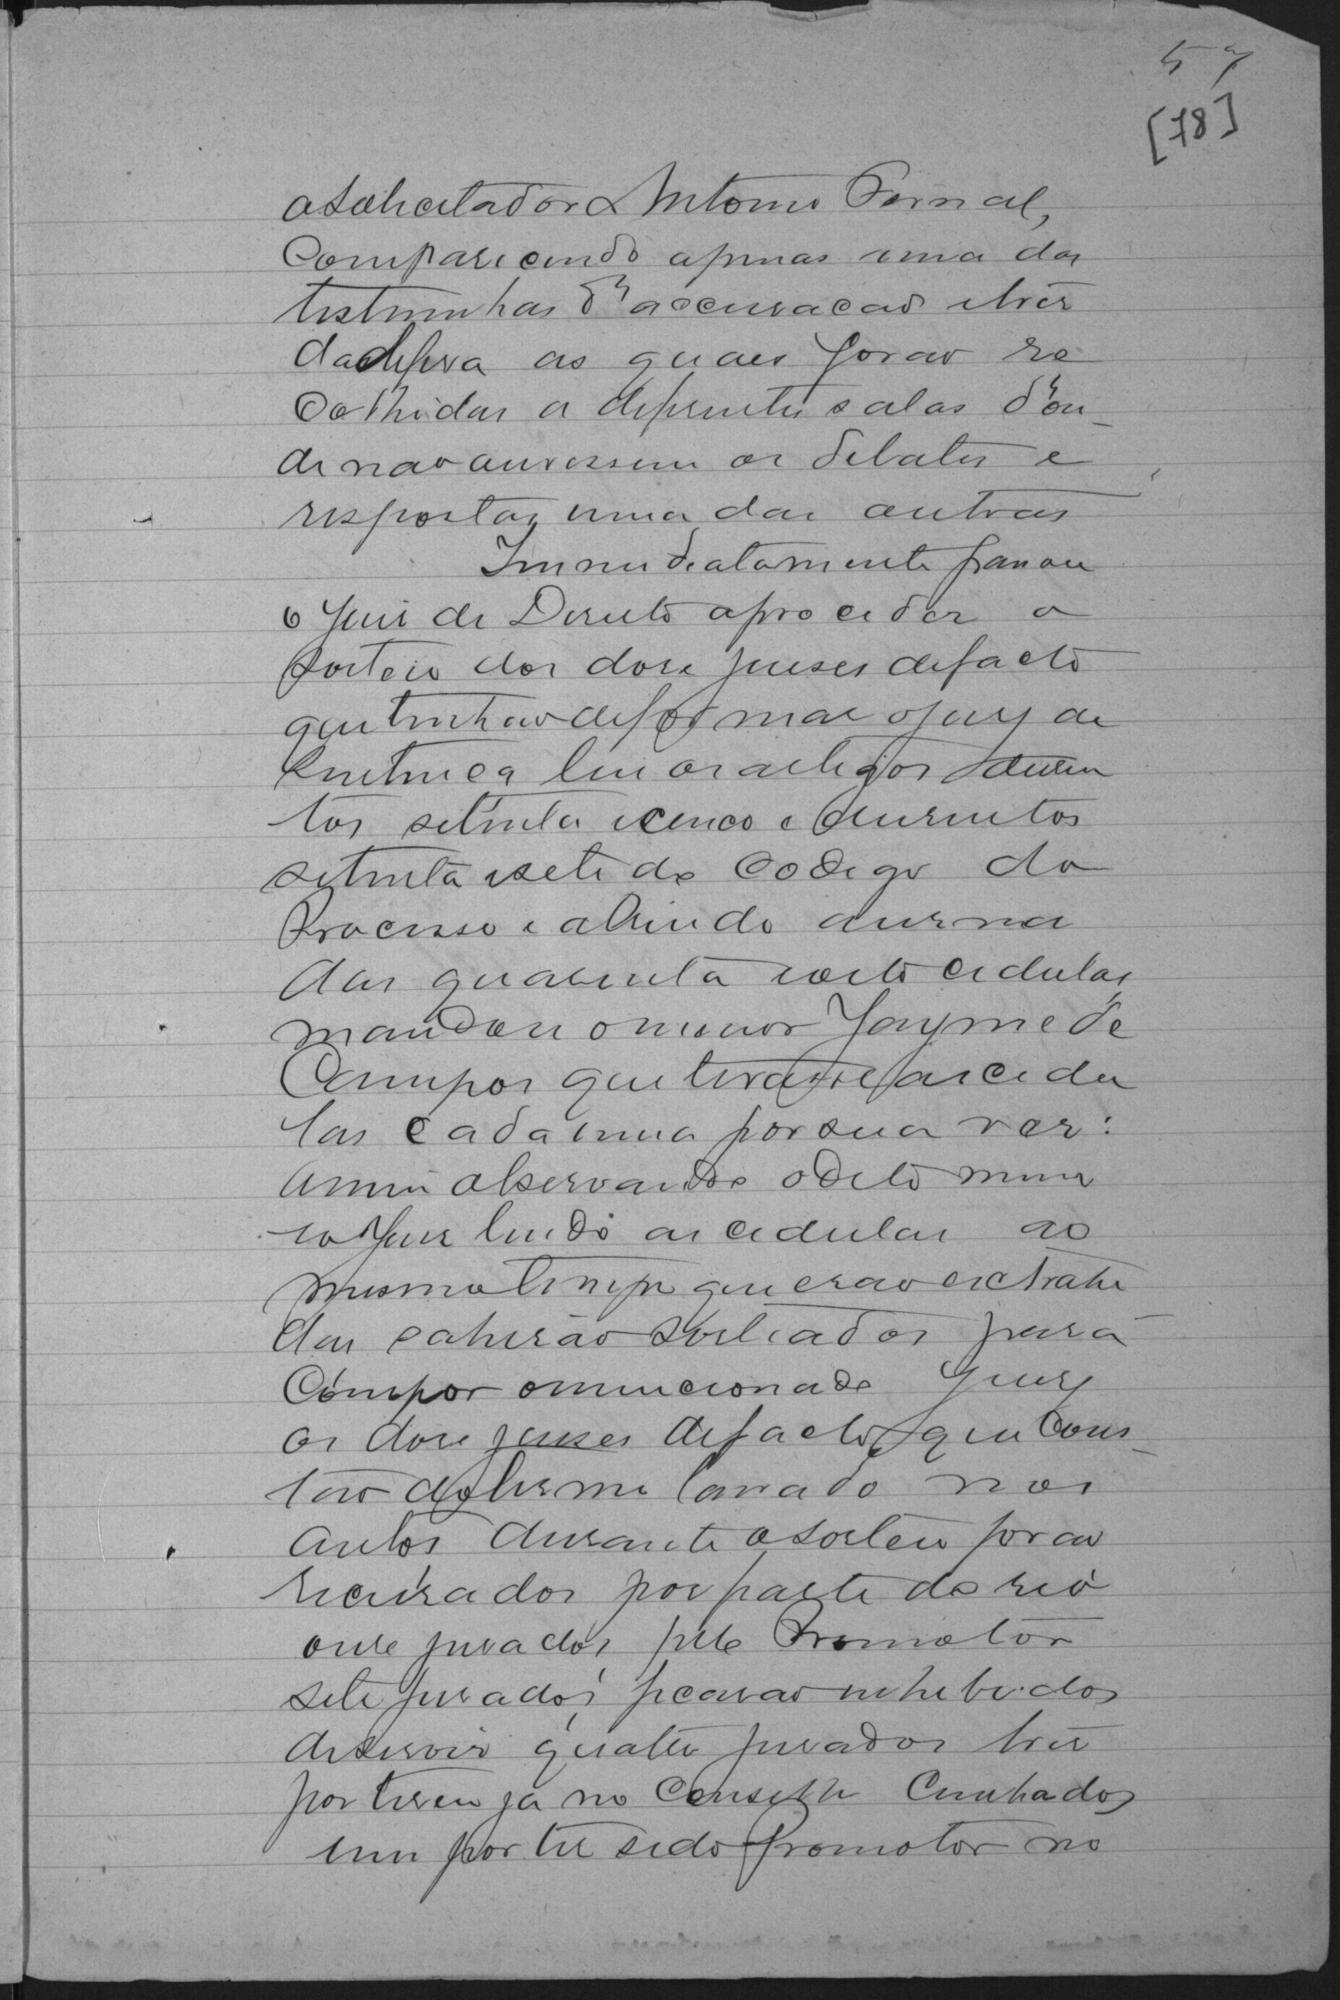 57
[78]
o Solicitador Antonio Bernal,
Comparecendo apenas uma das
testemunhas d'accusacão e tres
da defesa as quaes forão re
colhidas a diferentes salas d'on-
de não ouvissem os debates e
respostas uma das outras
Immediatamente passou
o Juis de Direito a proceder o
sorteio dos dose juises de facto
que tinhão de formar o jury de
Sentença leu os artigos dusen
tos setenta e cinco e dusentos
setenta e sete do Codigo do
Processo e abrindo a urna
das quarenta e oito cedulas
mandou o menor Jayme de
Campos que tirasse as cedu
las cada uma por sua vez:
assim observando o dito menor
o Juis lendo as cedulas ao
mesmo tempo que erão extrahi
das sahirão sorteados para
Compor o mencionado Jury
os dose juises de facto que Cons-
tão do termo lavrado nos
autos durante o sorteio forão
recusados por parte do reó
onse jurados pelo Promotor
sete jurados, ficarão inhibidos
de servir quatro jurados tres
por terem já no Conselho Cunhados
um por ter sido Promotor no